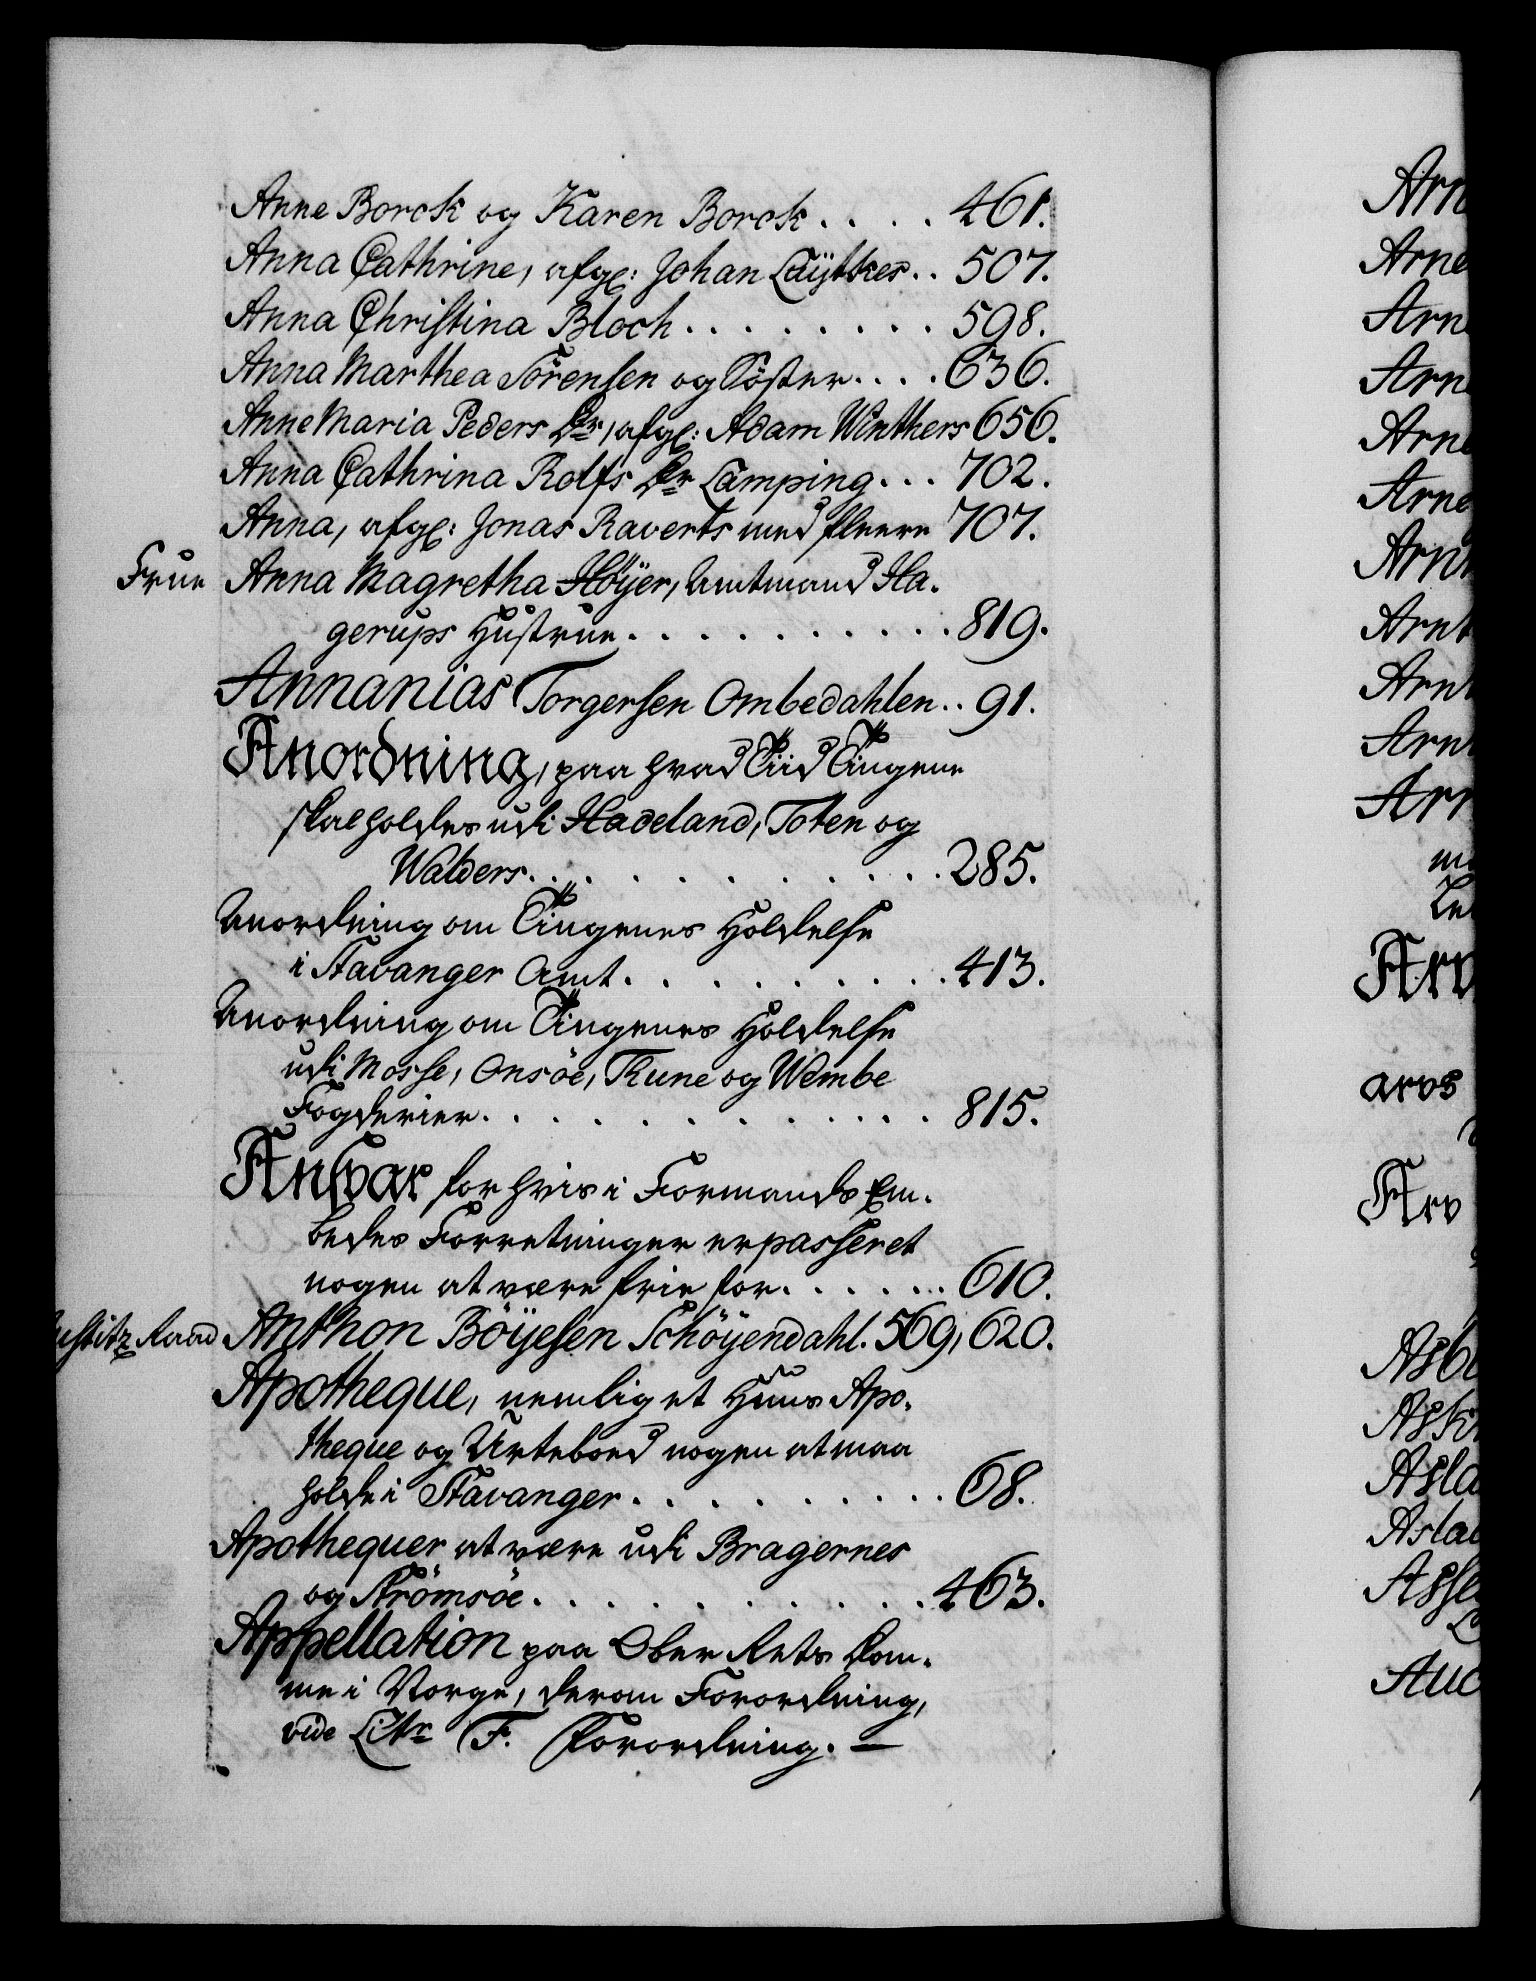 Anne Borck og Karen Borck . . . . 461.
Anna Cathrine, afgl: Johan Lüttkes . . 507.
Anna Christina Bloch . . . . . . . . . 598.
Anna Marthea Sörensen og Söster . . . . 636.
Anne Maria Peders Dr, afgl: Adam Winthers 656.
Anna Cathrina Rolfs Dr Lamping . . . 702.
Anna, afgl: Jonas Raverts med fleere 707.
Frue Anna Magretha Höyer, Amtmand Ha-
gerups Hustrue . . . . . . . . . . . 819.
Annanias Torgersen Ombedahlen . . 91.
Anordning, paa hvad Tiid Tingene
skal holdes udi Hadeland, Toten og
Walders . . . . . . . . . . . . . 285.
Anordning om Tingenes Holdelse
i Stavanger Amt . . . . . . . . . . 413.
Anordning om Tingenes Holdelse
udi Mosse, Onsöe, Thune og Wembe
Fogderier . . . . . . . . . . . . . 815.
Ansvar for hvis i Formands Em-
bedes Forretninger er passeret
nogen at være frie for . . . . . . . 610.
ustitz Raad Anthon Böyesen Schöyendahl. 569, 620.
Apotheque, nemlig et Huus Apo-
theque og Urtebod nogen at maa
holde i Stavanger . . . . . . . . . . 68.
Apothequer at være udi Bragernes
og Strömsöe . . . . . . . . . . . . 463.
Appellation paa Ober Rets Dom-
me i Norge, derom Forordning,
vide Littr F. Forordning. —
Arn
Arne
Arn
Arn
Arne
Arne
Arn
Arnt
Arn
Arn
Ar
m
Arv
arvs
Arv
Asb
Ask
Asla
Asla
Asse
Auc